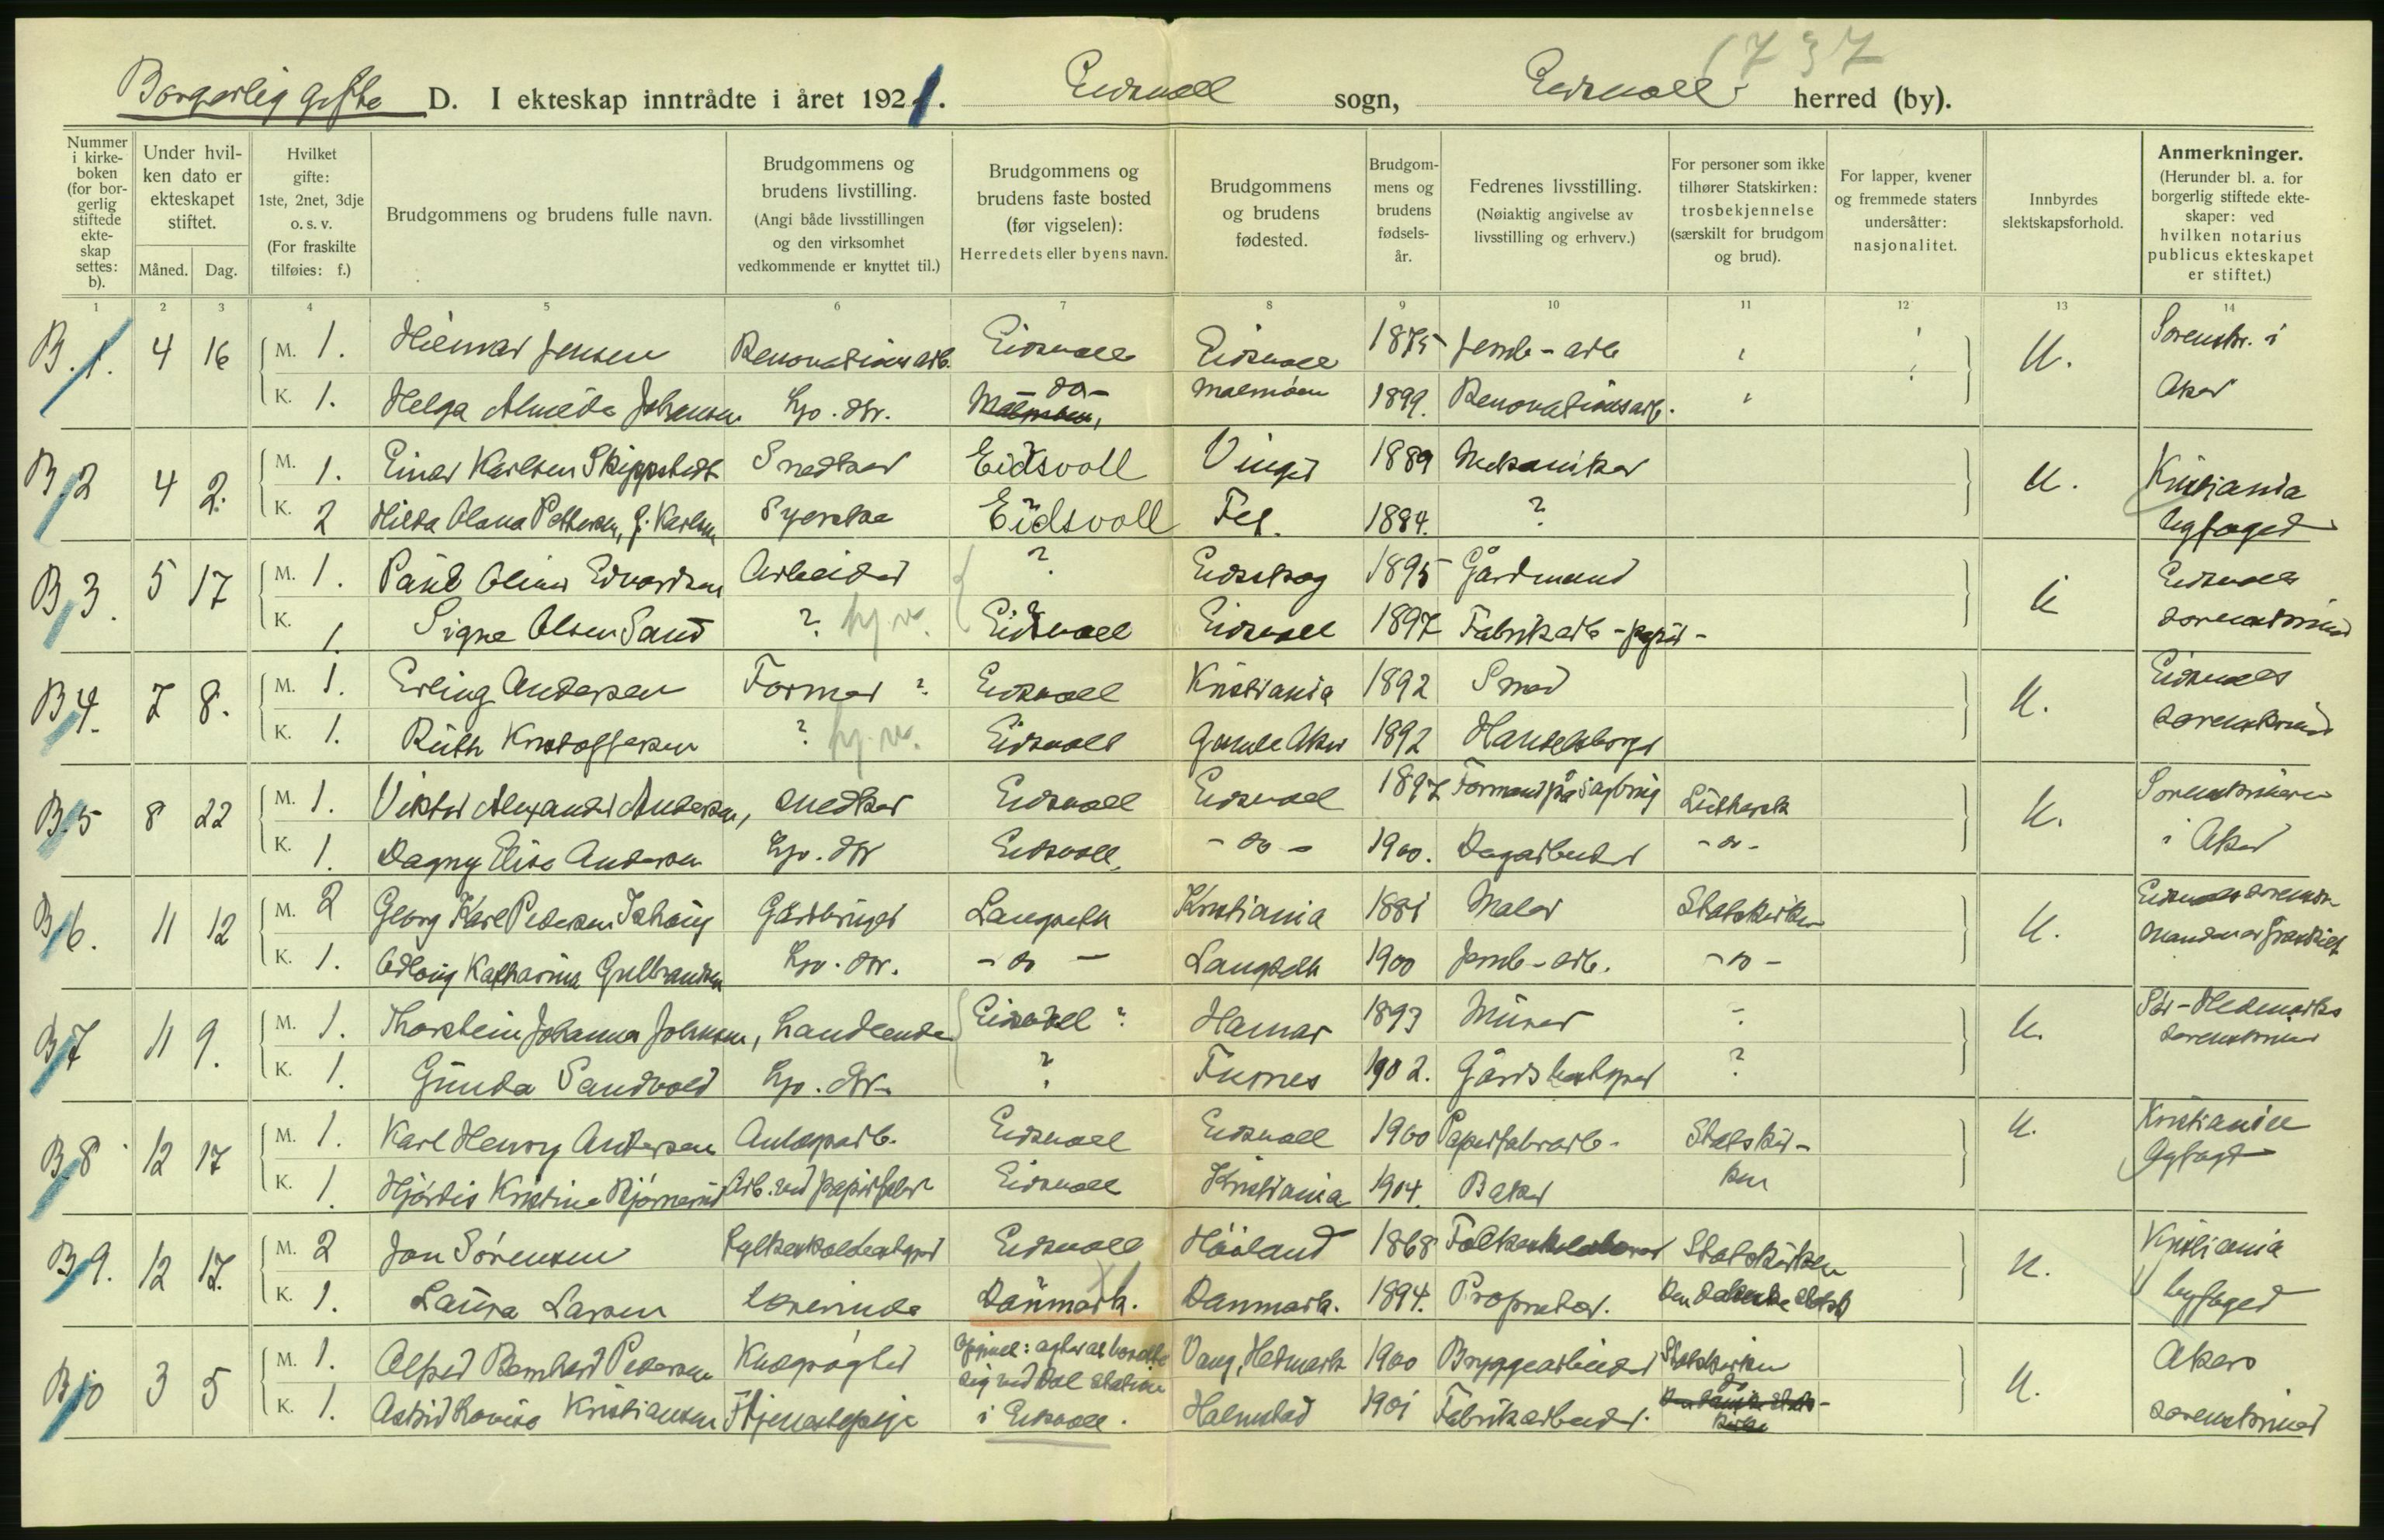 1737
Borgerlig gifte D. I ekteskap inntrådte i året 1921. Eidsvoll sogn, Eidsvoll herred (by).
Nummer i kirke-boken (for bor-gerlig stiftede ekte-skap settes: b).
Under hvil-ken dato er ekteskapet stiftet.
Måned. Dag.
Hvilket gifte: 1ste, 2net, 3dje o. s. v. (For fraskilte tilføies: f.)
Brudgommens og brudens fulle navn.
Brudgommens og brudens livstilling. (Angi både livsstillingen og den virksomhet vedkommende er knyttet til.)
Brudgommens og brudens faste bosted (før vigselen): Herredets eller byens navn.
Brudgommens og brudens fødested.
Brudgom-mens og brudens fødsels-år.
Fedrenes livsstilling. (Nøiaktig angivelse av livsstilling og erhverv.)
For personer som ikke tilhører Statskirken: trosbekjennelse (særskilt for brudgom og brud).
For lapper, kvener og fremmede staters undersåtter: nasjonalitet.
Innbyrdes slektskapsforhold.
Anmerkninger. (Herunder bl. a. for borgerlig stiftede ekte-skaper: ved hvilken notarius publicus ekteskapet er stiftet.)
1 2 3 4 5 6 7 8 9 10 11 12 13 14
B.1. 4 16 M. 1. Hilmar Jensen Renovationsarb. Eidsvoll Eidsvoll 1875 Jernb-arb U. Sorenskr. i
K. 1. Helga Almeda Johansen Hj. dtr. -do- Malmöen 1899. Renovationsarb. Aker
B.2 4 2. M. 1. Einar Karlsen Skippstedt Snedker Eidsvoll Vinger 1889 Mekaniker U. Kristiania
K. 2 Hilda Olava Pettersen, f. Karlsen Syerske Eidsvoll Fet. 1884. ? byfoged
B.3. 5 17 M. 1. Paul Olines Edvardsen Arbeider ? Eidskog 1895 Gårdmand U Eidsvoll
K. 1. Signe Olsen Sand ? hj.v. Eidsvoll Eidsvoll 1897 Fabrikarb-papir- sorenskriver
B.4. 7 8. M. 1. Erling Andersen Former ? Eidsvoll Kristiania 1892 Smed U. Eidsvolls
K. 1. Ruth Kristoffersen ? hj.v. Eidsvoll Gamle Aker 1892 Handelsborger sorenskriver
B.5 8 22 M. 1. Viktor Alexander Andersen, snedker Eidsvoll Eidsvoll 1897 Formand på sagbrug Luthersk U. Sorenskriveren
K. 1. Dagny Elise Andersen Hj. dtr Eidsvoll, -do- 1900. Dagarbeider -do- i Aker
B.6. 11 12 M. 2 Georg Karl Pedersen Gårdbruger Langseth Kristiania 1881 Maler Statskirken U. Eidsvolls sorenskr.
K. 1. Katharina Gulbrandsen Hj. dtr. -do- Langseth 1900 Jernb-arb. -do- Manden er fraskilt
B.7 11 9. M. 1. Thorstein Johannes Johnsen, handlende Eidsvoll ? Hamar 1893 Murer ? U. Sør-Hedmarks
K. 1. Gunda Sandvold Hj. dtr. ? Furnes 1902. Gårdsbestyrer ? sorenskriver
B.8 12 17 M. 1. Karl Henry Andersen Anlegsarb. Eidsvoll Eidsvoll 1900 Papirfabrarb. Statskir- U. Kristiania
K. 1. Hjørdis Kristine Bjørnerud Arb. ved papirfabr. Eidsvoll Kristiania 1904. Baker ken byfogd
B.9. 12 17. M. 2 Jon Sørensen Fylkesskolebestyrer Eidsvoll Höiland 1868 Folkeskolelærer Statskirken U. Kristiania
K. 1. Laura Larsen Lærerinde Danmark. Danmark. 1894. Proprietær. Den danske statsk byfoged
B.10 3 5 M. 1. Alfred Bernhard Pedersen Kudrøgter Opgivet: agter at bosætte Vang, Hedmark 1900 Bryggearbeider Statskirken U. Akers
sig ved Dal station
K. 1. Astrid Lovise Kristiansen Tjenestepige i Eidsvoll. Halmstad 1901 Fabrikarbeider. do sorenskriver